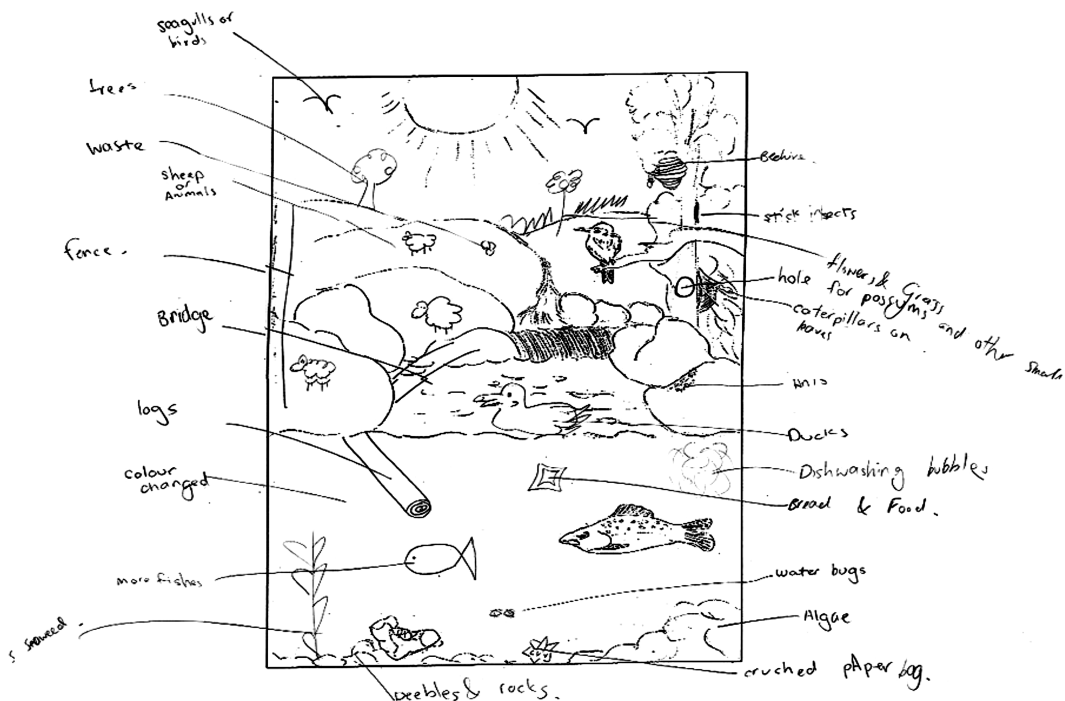 seagulls or
birds
trees
waste
sheep
or
Animals
fence.
Bridge
logs
colour
changed
more fishes
seaweed.
Peebles & rocks.
Beehive.
stick insects
flowers & Grass
hole
for possyms and other small
caterpillars on
leaves
Ants
Ducks
Dishwashing bubbles
Bread & Food.
water bugs
Algae
cruched pAper bag.